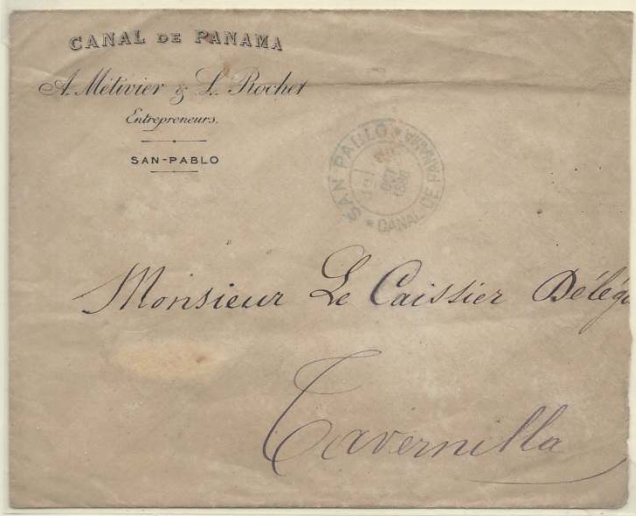 CANAL DE PANAMA
A. Métivier & L. Rochet
Entrepreneurs.
SAN-PABLO
SAN PABLO * CANAL DE PANAMA *
Monsieur Le Caissier Délég
Tavernilla